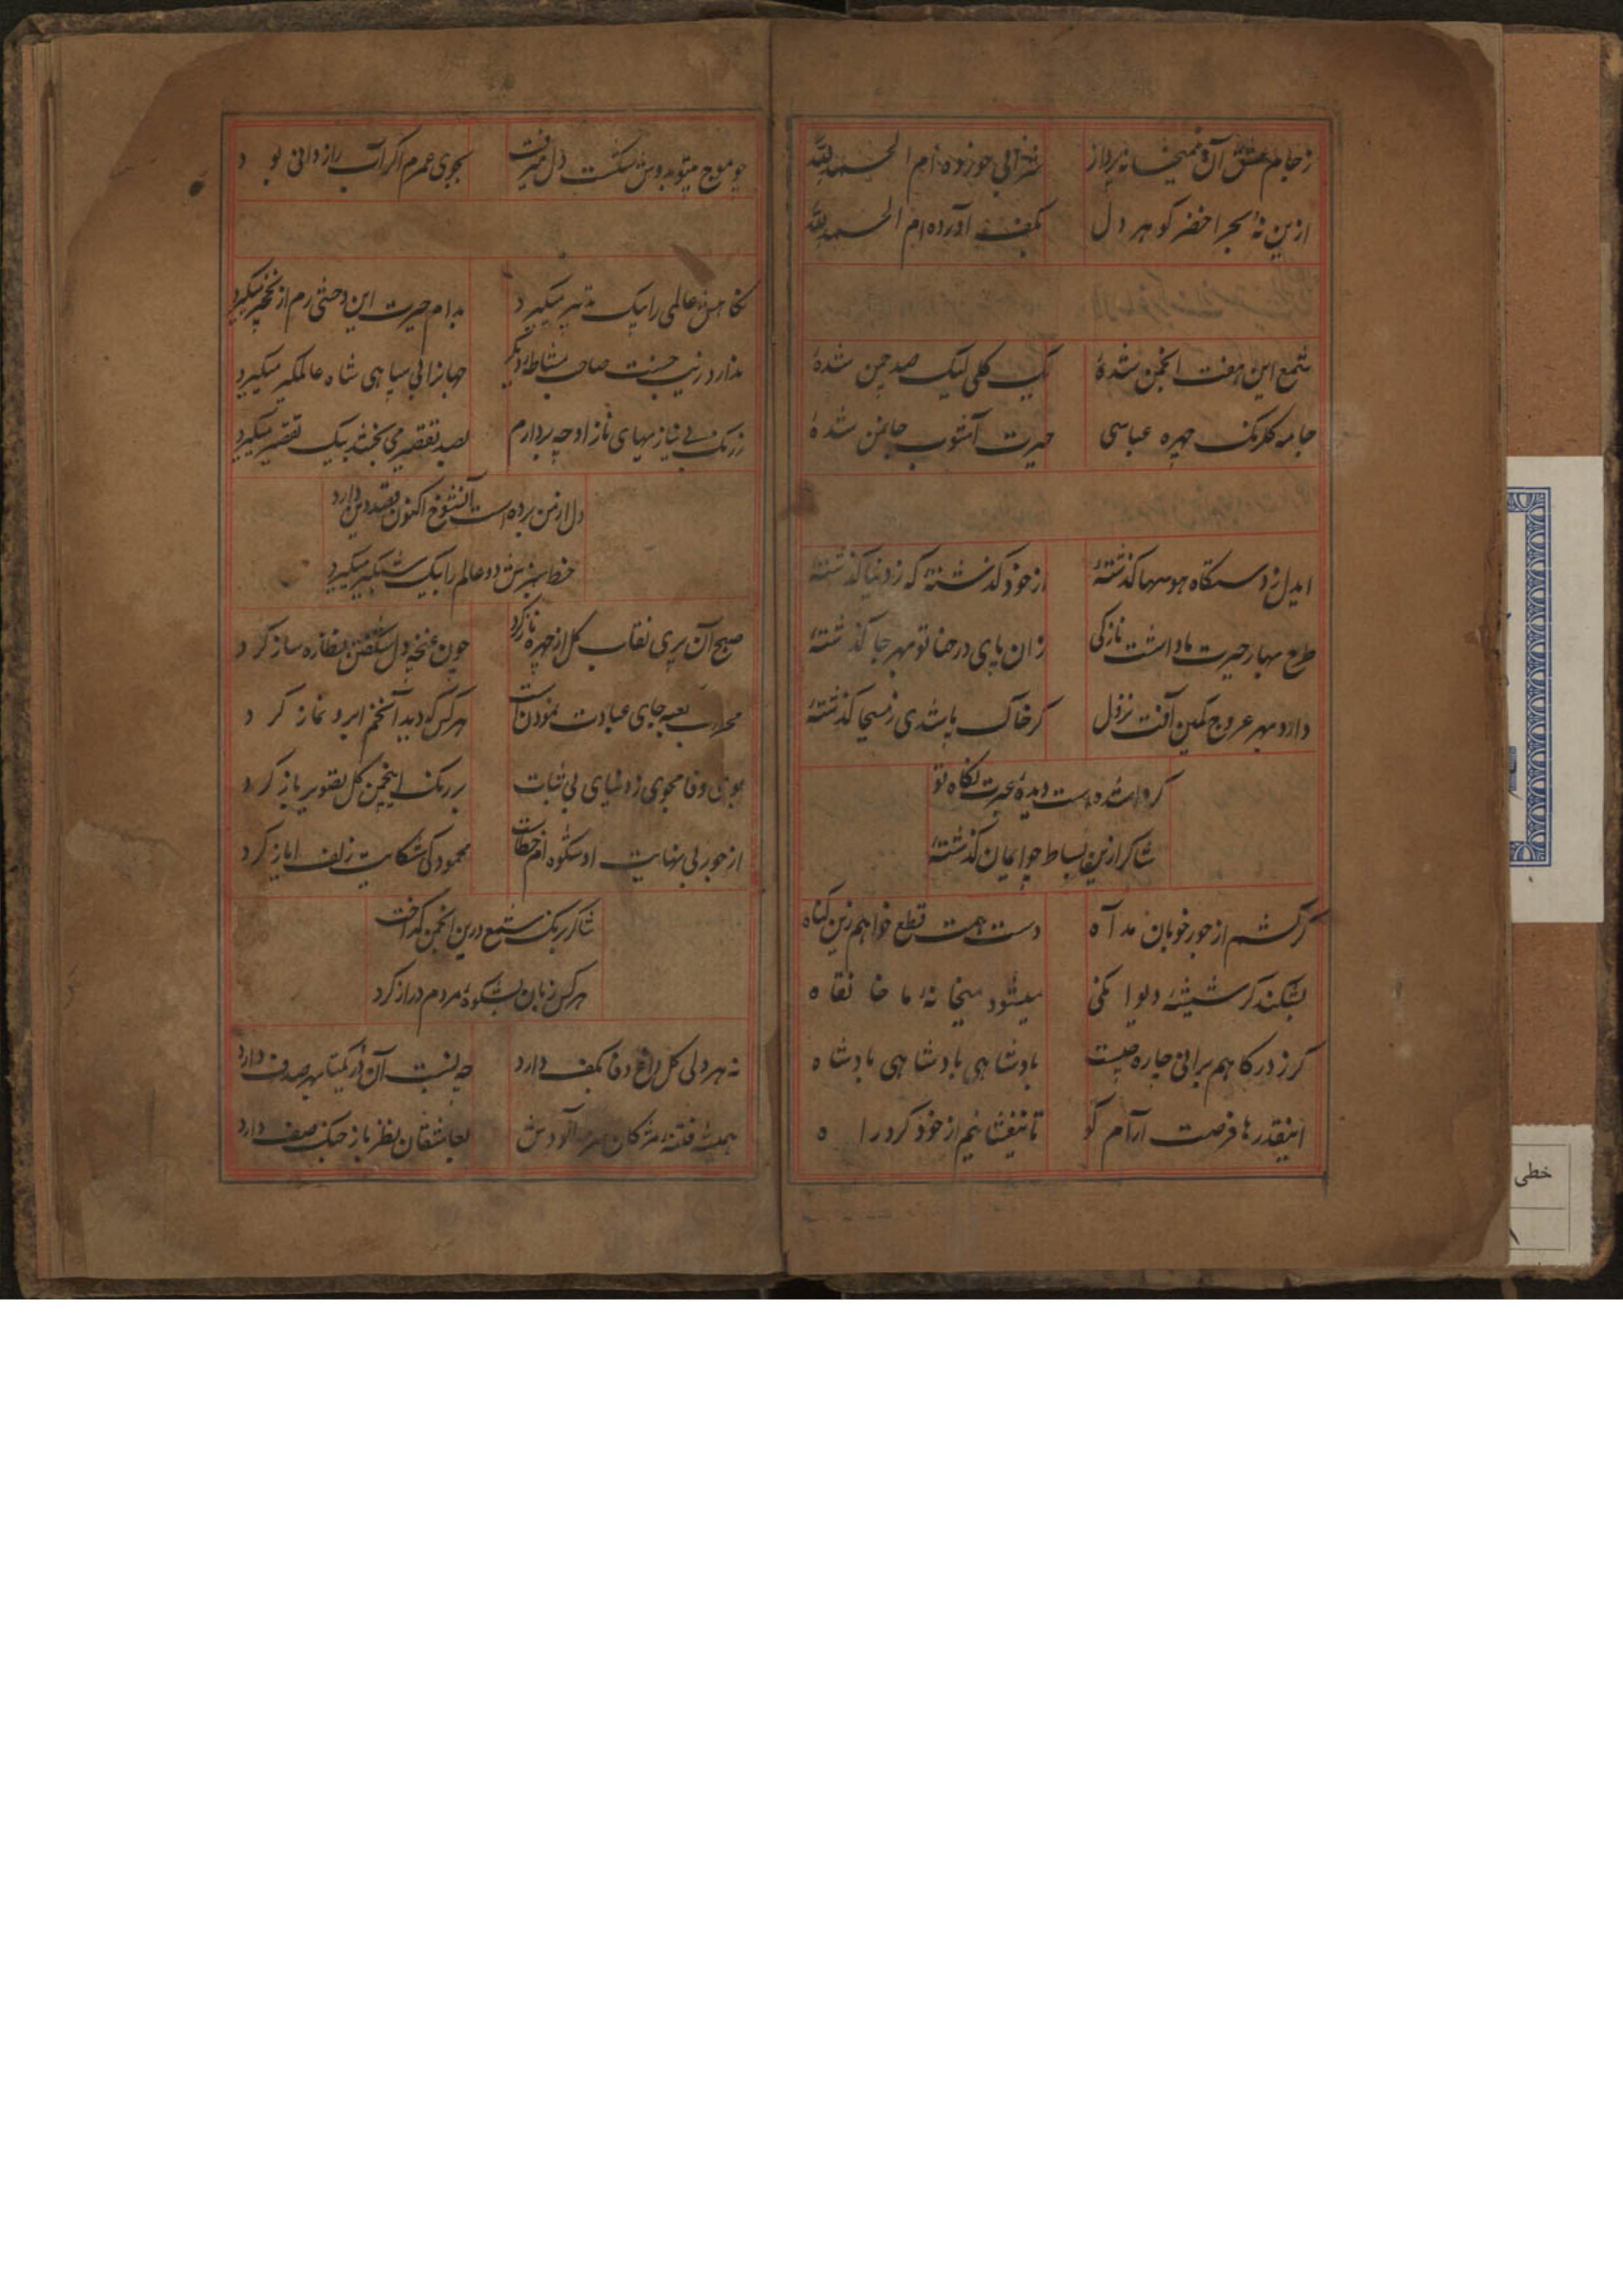 ز جام عشق آن میخانه پرداز شرابی خورده ام الحمدلله
ازین نه بحر اخضر گوهر دل بکف آورده ام الحمدلله
شمع این هفت انجمن شدهٔ یک گلی لیک صد چمن شدهٔ
جامه گلرنگ چهره عباسی حیرت آشوب جان من شدهٔ
ایدل ز دستگاه هوسها گذشتهٔ از خود گذشتهٔ که ز دنیا گذشتهٔ
طرح بهار حیرت ما داشت نازکی زان پای در حنا تو بهر جا گذشتهٔ
دارد بهر عروج کمین آفت نزول گر خاک باشدی ز مسیحا گذشتهٔ
گرد است دیدهٔ عبرت نگاه تو
شاکر ازین بساط
گر کشم از جور خوبان مد آه دست همت قطع خواهم زین گناه
بشکند گر شیشهٔ دیوانگی میشود میخانهٔ ما خانقاه
گر ز درگاهم برانی چاره چیست پادشاهی پادشاهی پادشاه
اینقدرها فرصت آرام کو تا از خود گرد راه
چو موج شکست دل میرفت بجوی عمرم اگر آب رازدانی بود
نگاهش عالمی را بیک تدبیر میگیرد بدام حیرت این وحشی رم از نخچیر میگیرد
ندارد زیب حسنت صاحب مشاطهٔ دیگر جهانرا بی سپاهی شاه عالمگیر میگیرد
ز رنگ بی نیازیهای ناز او چه پردازم بصد تقصیر می بخشد بیک تقصیر میگیرد
دل از من برده است آنشوخ اکنون قصد دین دارد
خط سبزش دو عالم را بیک میگیرد
صبح آن پری نقاب گل از چهره باز کرد چون غنچه دل شکفتن نظاره ساز کرد
محراب کعبه جای عبادت نمودن است هرکس که دید آنخم ابرو نماز کرد
بوی وفا مجوی ز دنیای بی ثبات بر رنگ اینچمن گل تصویر باز کرد
از جور بی نهایت او شکوه ام خطاست محمود کی شکایت زلف ایاز کرد
شاکر برنگ شمع درین انجمن گداخت
هرکس زبان بشکوهٔ مردم دراز کرد
نه هر دلی گل داغ وفا بکف دارد چه نسبت آن در یکتا بهر صدف دارد
همیشه فتنهٔ مژگان سرمه آلودش بعاشقان نظرباز جنگ صف دارد
خطی